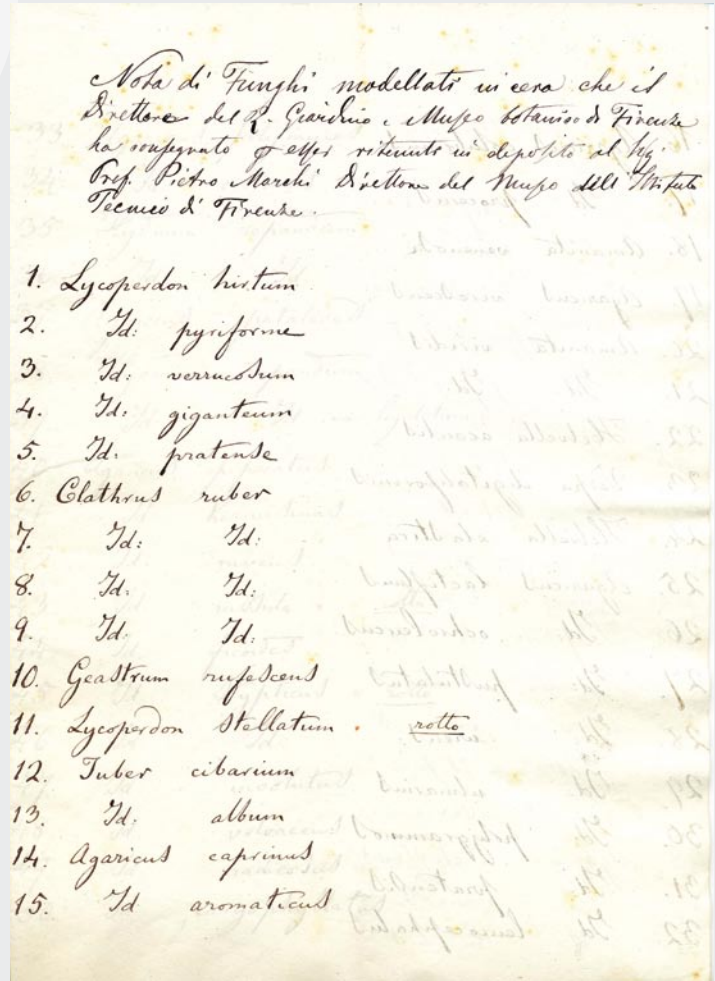 Nota di Funghi modellati in cera che il
Direttore del R. Giardino e Museo botanico di Firenze
ha consegnato esser ritenuti in deposito al Sig.
Prof. Pietro Marchi Direttore del Museo dell'Istituto
Tecnico di Firenze.
1. Lycoperdon hirtum
2. Id: pyriforme
3. Id: verrucosum
4. Id: giganteum
5. Id: pratense
6. Clathrus ruber
7. Id: Id:
8. Id: Id:
9. Id. Id:
10. Geastrum rufescens
11. Lycoperdon stellatum. rotto
12. Tuber cibarium
13. Id: album
14. Agaricus caprinus
15. Id aromaticus